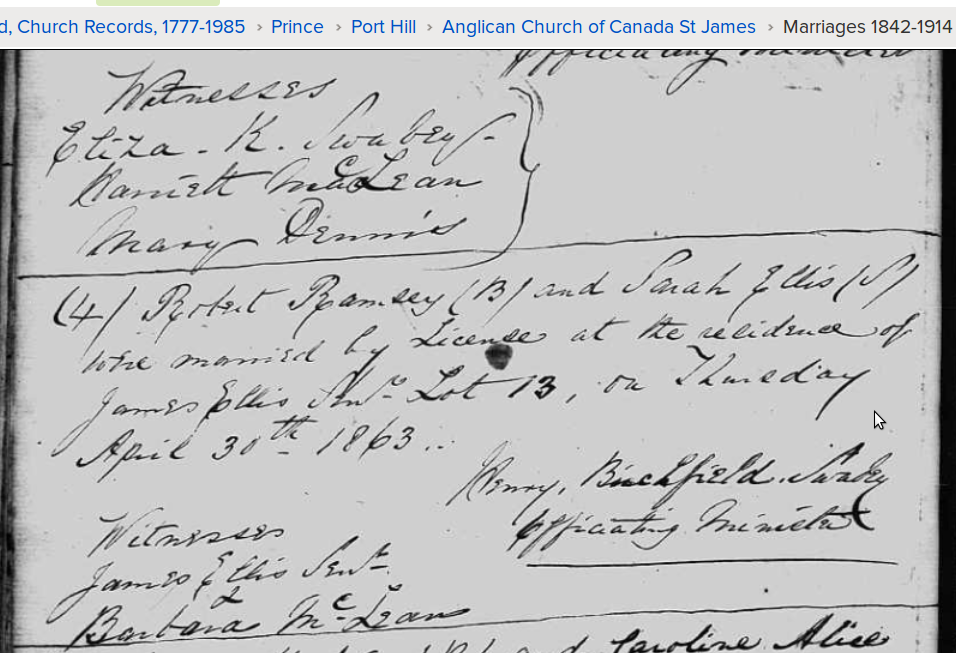 d, Church Records, 1777-1985 › Prince › Port Hill › Anglican Church of Canada St James › Marriages 1842-1914
Officiating Minister
Witnesses
Eliza - K. Swabey -
Harriett McLean
Mary Dennis
(4) Robert Ramsey (B) and Sarah Ellis (S)
were married by License at the residence of
James Ellis Senr Lot 13, on Thursday
April 30th 1863..
Henry, Birchfield. Swabey
Officiating Minister
Witnesses
James Ellis Senr.
Barbara McLean
and Caroline Alice